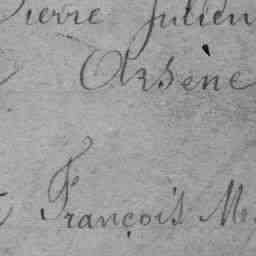 Pierre Julien
Arsène
François M